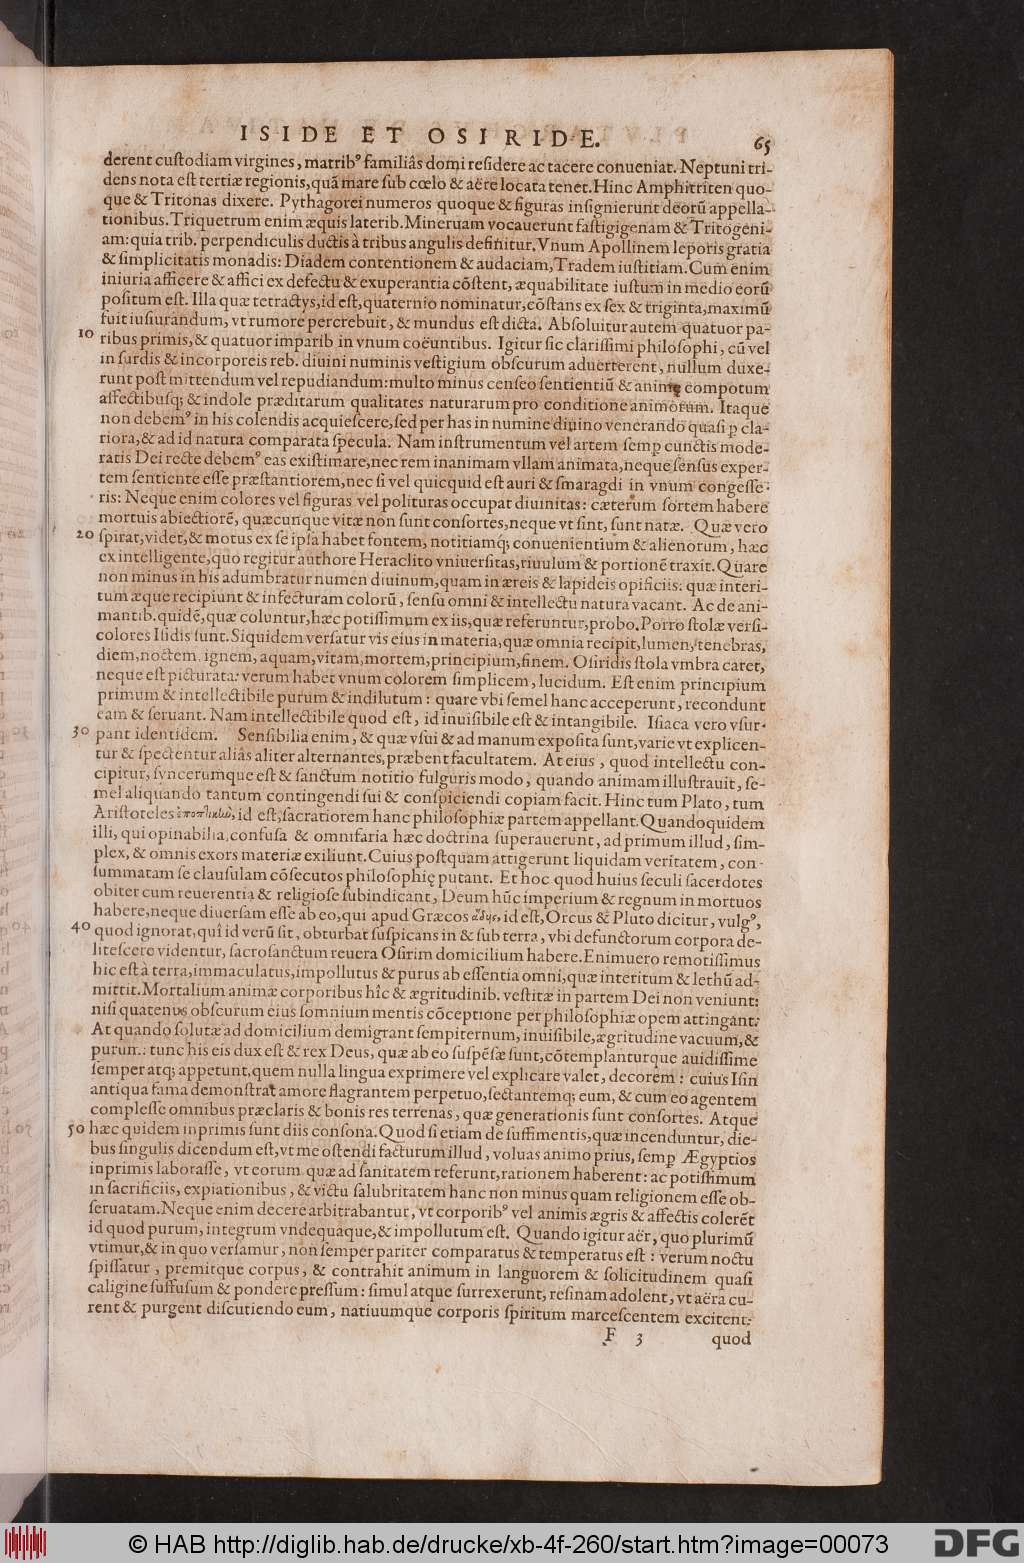 ISIDE ET OSIRIDE. 65
derent custodiam virgines, matribꝰ familiâs domi residere ac tacere conueniat. Neptuni tri-
dens nota est tertiæ regionis, quã mare sub cœlo & aëre locata tenet. Hinc Amphitriten quo-
que & Tritonas dixere. Pythagorei numeros quoque & figuras insignierunt deorũ appella-
tionibus. Triquetrum enim æquis laterib. Mineruam vocauerunt fastigigenam & Tritogeni-
am: quia trib. perpendiculis ductis à tribus angulis definitur. Vnum Apollinem leporis gratia
& simplicitatis monadis: Diadem contentionem & audaciam, Tradem iustitiam. Cum enim
iniuria afficere & affici ex defectu & exuperantia cõstent, æquabilitate iustum in medio eorũ
positum est. Illa quæ tetractys, id est, quaternio nominatur, cõstans ex sex & triginta, maximũ
fuit iusiurandum, vt rumore percrebuit, & mundus est dicta. Absoluitur autem quatuor pa-
10 ribus primis, & quatuor imparib in vnum coëuntibus. Igitur sic clarissimi philosophi, cũ vel
in surdis & incorporeis reb. diuini numinis vestigium obscurum aduerterent, nullum duxe-
runt post mittendum vel repudiandum: multo minus censeo sentientiũ & animę compotum
affectibusq; & indole præditarum qualitates naturarum pro conditione animorum. Itaque
non debemꝰ in his colendis acquiescere, sed per has in numine diuino venerando quasi ꝑ cla-
riora, & ad id natura comparata specula. Nam instrumentum vel artem semꝑ cunctis mode-
ratis Dei recte debemꝰ eas existimare, nec rem inanimam vllam animata, neque sensus exper-
tem sentiente esse præstantiorem, nec si vel quicquid est auri & smaragdi in vnum congesse-
ris: Neque enim colores vel figuras vel polituras occupat diuinitas: cæterum sortem habere
mortuis abiectiorẽ, quæcunque vitæ non sunt consortes, neque vt sint, sunt natæ. Quæ vero
20 spirat, videt, & motus ex se ipsa habet fontem, notitiamq; conuenientium & alienorum, hæc
ex intelligente, quo regitur authore Heraclito vniuersitas, riuulum & portionẽ traxit. Quare
non minus in his adumbratur numen diuinum, quam in æreis & lapideis opificiis: quæ interi-
tum æque recipiunt & infecturam colorũ, sensu omni & intellectu natura vacant. Ac de ani-
mantib. quidẽ, quæ coluntur, hæc potissimum ex iis, quæ referuntur, probo. Porro stolæ versi-
colores Isidis sunt. Siquidem versatur vis eius in materia, quæ omnia recipit, lumen, tenebras,
diem, noctem, ignem, aquam, vitam, mortem, principium, finem. Osiridis stola vmbra caret,
neque est picturata: verum habet vnum colorem simplicem, lucidum. Est enim principium
primum & intellectibile purum & indilutum: quare vbi semel hanc acceperunt, recondunt
eam & seruant. Nam intellectibile quod est, id inuisibile est & intangibile. Isiaca vero vsur-
30 pant identidem. Sensibilia enim, & quæ vsui & ad manum exposita sunt, varie vt explicen-
tur & spectentur aliâs aliter alternantes, præbent facultatem. At eius, quod intellectu con-
cipitur, syncerumque est & sanctum notitio fulguris modo, quando animam illustrauit, se-
mel aliquando tantum contingendi sui & conspiciendi copiam facit. Hinc tum Plato, tum
Aristoteles ἐποπτικὼ, id est, sacratiorem hanc philosophiæ partem appellant. Quandoquidem
illi, qui opinabilia, confusa & omnifaria hæc doctrina superauerunt, ad primum illud, sim-
plex, & omnis exors materiæ exiliunt. Cuius postquam attigerunt liquidam veritatem, con-
summatam se clausulam cõsecutos philosophię putant. Et hoc quod huius seculi sacerdotes
obiter cum reuerentia & religiose subindicant, Deum hũc imperium & regnum in mortuos
habere, neque diuersam esse ab eo, qui apud Græcos ᾅδης, id est, Orcus & Pluto dicitur, vulgꝰ,
40 quod ignorat, quî id verũ sit, obturbat suspicans in & sub terra, vbi defunctorum corpora de-
litescere videntur, sacrosanctum reuera Osirim domicilium habere. Enimuero remotissimus
hic est à terra, immaculatus, impollutus & purus ab essentia omni, quæ interitum & lethũ ad-
mittit. Mortalium animæ corporibus hîc & ægritudinib. vestitæ in partem Dei non veniunt:
nisi quatenus obscurum eius somnium mentis cõceptione per philosophiæ opem attingant:
At quando solutæ ad domicilium demigrant sempiternum, inuisibile, ægritudine vacuum, &
purum: tunc his eis dux est & rex Deus, quæ ab eo suspẽsæ sunt, cõtemplanturque auidissime
semper atq; appetunt, quem nulla lingua exprimere vel explicare valet, decorem: cuius Isin
antiqua fama demonstrat amore flagrantem perpetuo, sectantemq; eum, & cum eo agentem
complesse omnibus præclaris & bonis res terrenas, quæ generationis sunt consortes. Atque
50 hæc quidem inprimis sunt diis consona. Quod si etiam de suffimentis, quæ incenduntur, die-
bus singulis dicendum est, vt me ostendi facturum illud, voluas animo prius, semꝑ Ægyptios
inprimis laborasse, vt eorum quæ ad sanitatem referunt, rationem haberent: ac potissimum
in sacrificiis, expiationibus, & victu salubritatem hanc non minus quam religionem esse ob-
seruatam. Neque enim decere arbitrabantur, vt corporibꝰ vel animis ægris & affectis colerẽt
id quod purum, integrum vndequaque, & impollutum est. Quando igitur aër, quo plurimũ
vtimur, & in quo versamur, non semper pariter comparatus & temperatus est: verum noctu
spissatur, premitque corpus, & contrahit animum in languorem & solicitudinem quasi
caligine suffusum & pondere pressum: simul atque surrexerunt, resinam adolent, vt aëra cu-
rent & purgent discutiendo eum, natiuumque corporis spiritum marcescentem excitent:
F 3 quod
© HAB http://diglib.hab.de/drucke/xb-4f-260/start.htm?image=00073 DFG